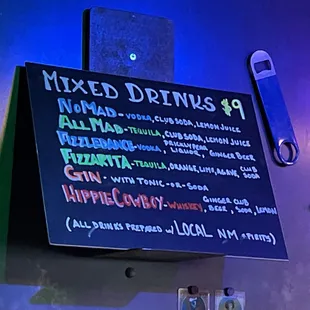 MIXED DRINKS $9
NOMAD - VODKA, CLUB SODA, LEMON JUICE
ALL MAD - TEQUILA, CLUB SODA, LEMON JUICE
FIZZLEDANCE - VODKA, PRICKLY PEAR LIQUOR, GINGER BEER
FIZZARITA - TEQUILA, ORANGE, LIME, AGAVE, CLUB SODA
GIN - WITH TONIC - OR - SODA
HIPPIE COWBOY - WHISKEY, GINGER BEER, CLUB SODA, LEMON
(ALL DRINKS PREPARED W/ LOCAL NM SPIRITS)